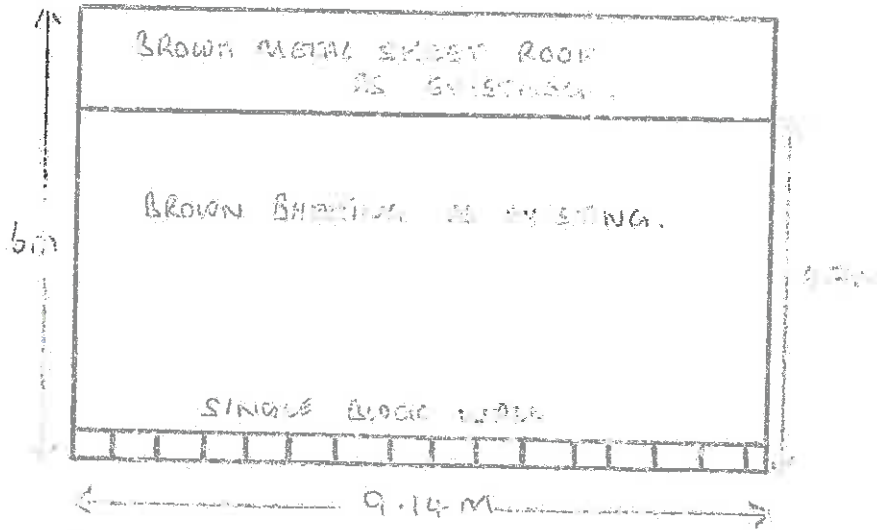 BROWN METAL SHEET ROOF
AS EXISTING.
BROWN AS EXISTING.
6m
SINGLE BLOCK WALL
9.14 M